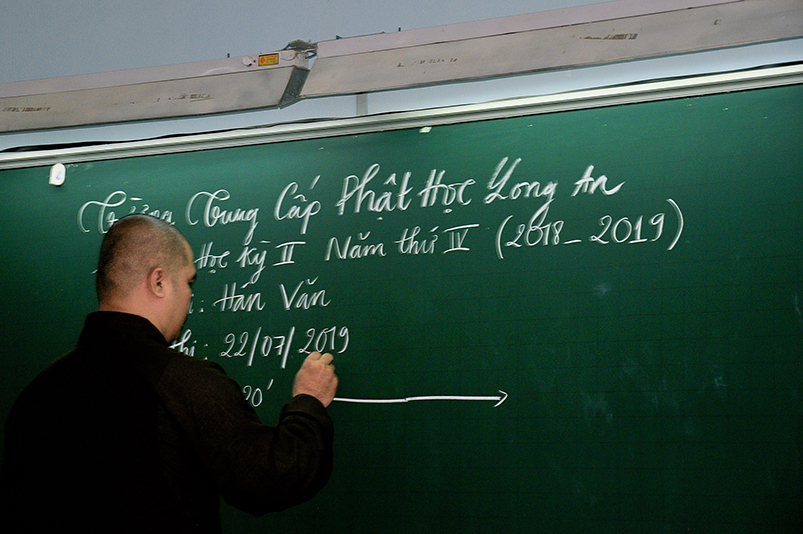 Trường Trung Cấp Phật Học Long An
Học kỳ II Năm thứ IV (2018 - 2019)
: Hán Văn
thi : 22/07/2019
20'